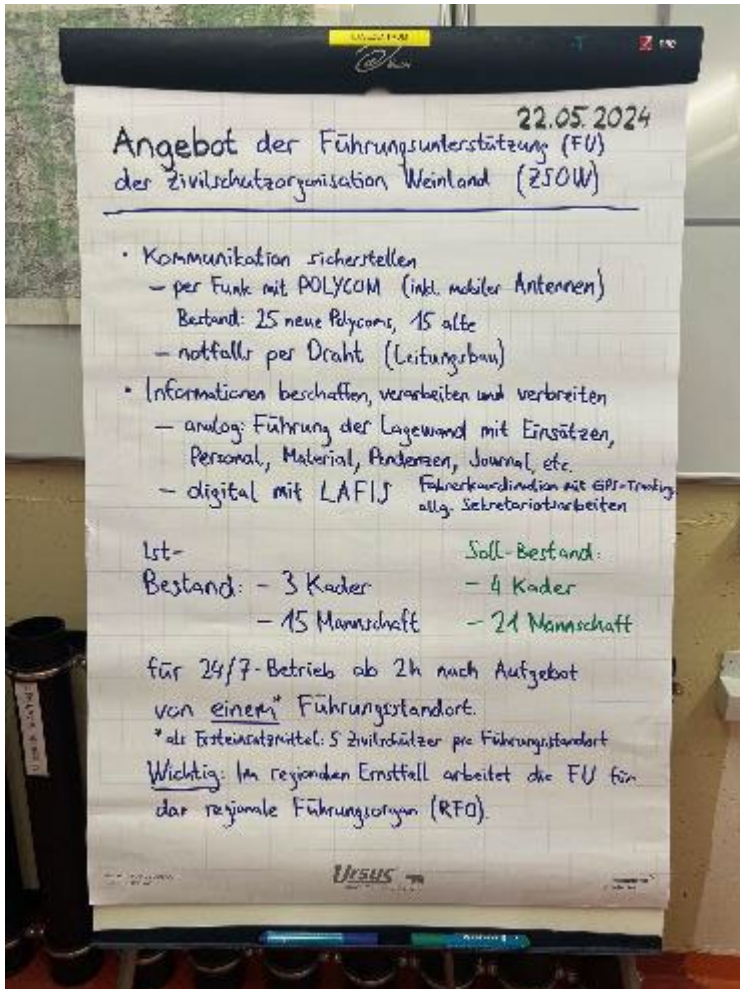 22.05.2024
Angebot der Führungsunterstützung (FU)
der Zivilschutzorganisation Weinland (ZSOW)
• Kommunikation sicherstellen
– per Funk mit POLYCOM (inkl. mobiler Antennen)
Bestand: 25 neue Polycoms, 15 alte
– notfalls per Draht (Leitungsbau)
• Informationen beschaffen, verarbeiten und verbreiten
– analog: Führung der Lagewand mit Einsätzen,
Personal, Material, Pendenzen, Journal, etc.
– digital mit LAFIS Fahrerkoordination mit GPS-Tracking
allg. Sekretariatsarbeiten
Ist-
Bestand: – 3 Kader
– 15 Mannschaft
Soll-Bestand:
– 4 Kader
– 21 Mannschaft
für 24/7-Betrieb ab 2h nach Aufgebot
von einem* Führungsstandort.
* als Ersteinsatzmittel: 5 Zivilschützer pro Führungsstandort
Wichtig: Im regionalen Ernstfall arbeitet die FU für
das regionale Führungsorgan (RFO).
Ursus